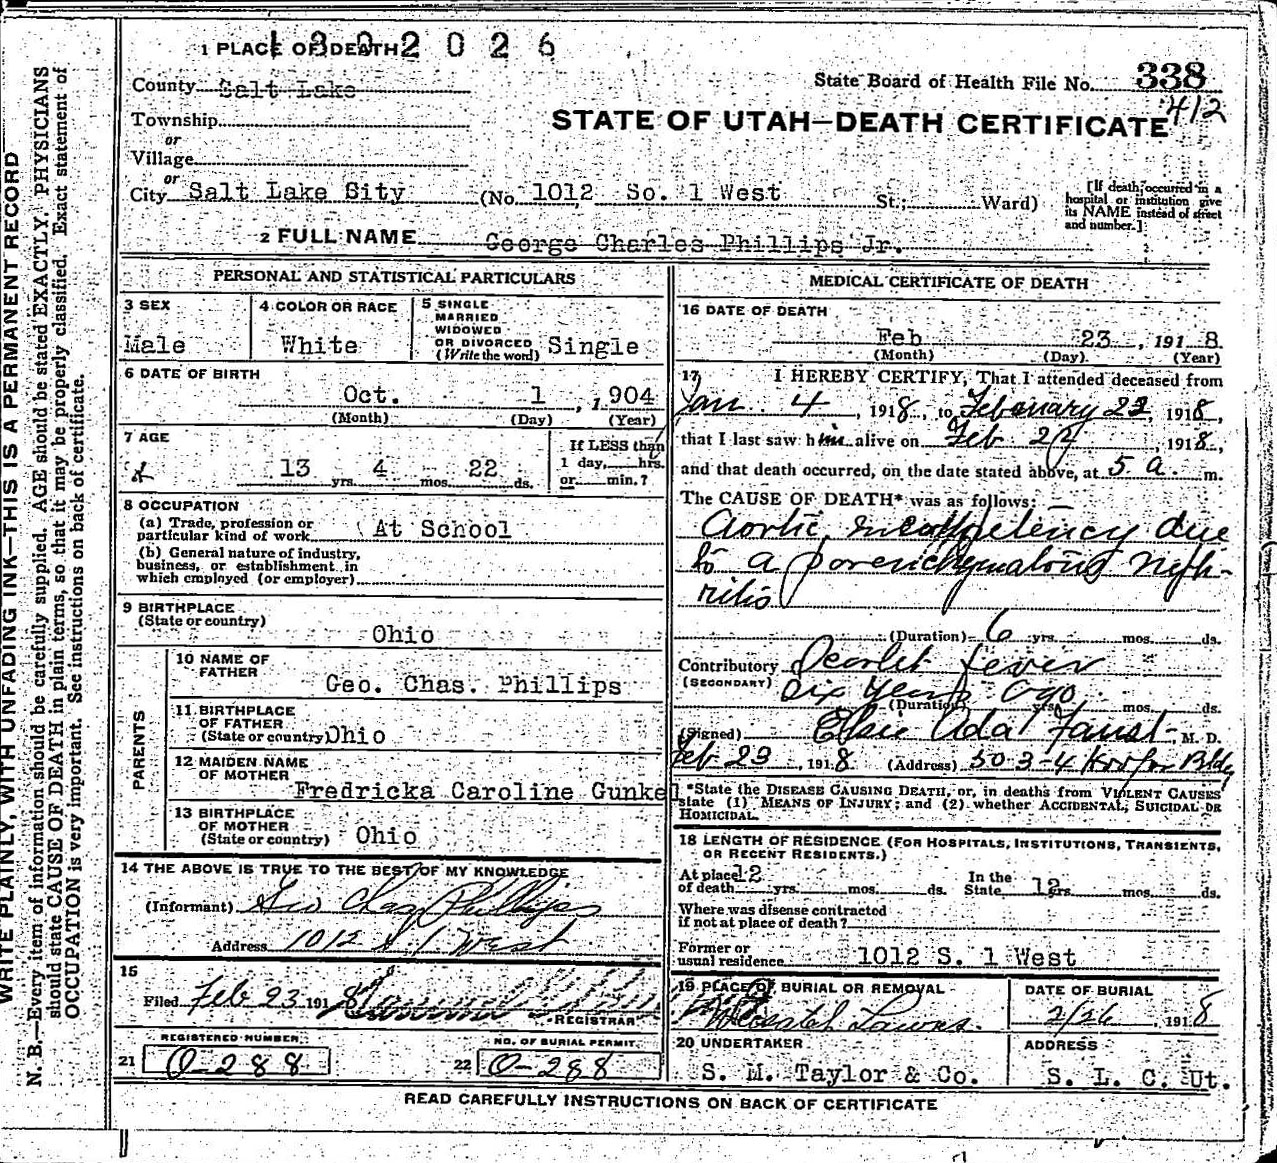 1302026
1 PLACE OF DEATH
County Salt Lake
State Board of Health File No. 338
412
Township
or
Village
or
STATE OF UTAH—DEATH CERTIFICATE
City Salt Lake Sity (No. 1012 So. 1 West St.; Ward)
[If death occurred in a
hospital or institution give
its NAME instead of street
and number.]
2 FULL NAME George Charles Phillips Jr.
PERSONAL AND STATISTICAL PARTICULARS
3 SEX
Male
4 COLOR OR RACE
White
5 SINGLE
MARRIED
WIDOWED
OR DIVORCED
(Write the word) Single
6 DATE OF BIRTH
Oct. 1, 1904
(Month) (Day) (Year)
7 AGE
13 yrs. 4 mos. 22 ds.
If LESS than
1 day, hrs.
or min.?
8 OCCUPATION
(a) Trade, profession or
particular kind of work At School
(b) General nature of industry,
business, or establishment in
which employed (or employer)
9 BIRTHPLACE
(State or country)
Ohio
PARENTS
10 NAME OF
FATHER
Geo. Chas. Phillips
11 BIRTHPLACE
OF FATHER
(State or country) Ohio
12 MAIDEN NAME
OF MOTHER
Fredricka Caroline Gunkel
13 BIRTHPLACE
OF MOTHER
(State or country) Ohio
14 THE ABOVE IS TRUE TO THE BEST OF MY KNOWLEDGE
(Informant) Geo Chas Phillips
Address 1012 S 1 West
15
Filed Feb 23 1918
REGISTRAR
REGISTERED NUMBER
21 O-288
NO. OF BURIAL PERMIT
22 O-288
MEDICAL CERTIFICATE OF DEATH
16 DATE OF DEATH
Feb 23, 1918.
(Month) (Day) (Year)
17 I HEREBY CERTIFY, That I attended deceased from
Jan. 4, 1918, to February 23, 1918,
that I last saw him alive on Feb 22, 1918,
and that death occurred, on the date stated above, at 5 a. m.
The CAUSE OF DEATH* was as follows:
Aortic incompetency due
to a parenchymatous neph-
ritis
(Duration) 6 yrs. mos. ds.
Contributory Scarlet fever
(SECONDARY) Six Years Ago
(Duration) yrs. mos. ds.
(Signed) Elsie Ada Faust M. D.
Feb 23, 1918 (Address) 503-4 Bldg
*State the DISEASE CAUSING DEATH, or, in deaths from VIOLENT CAUSES
state (1) MEANS OF INJURY; and (2) whether ACCIDENTAL, SUICIDAL OR
HOMICIDAL.
18 LENGTH OF RESIDENCE (FOR HOSPITALS, INSTITUTIONS, TRANSIENTS,
OR RECENT RESIDENTS.)
At place 12
of death yrs. mos. ds.
In the
State 12 yrs. mos. ds.
Where was disease contracted
if not at place of death?
Former or
usual residence 1012 S. 1 West
19 PLACE OF BURIAL OR REMOVAL
Wasatch Lawns.
DATE OF BURIAL
2/26, 1918
20 UNDERTAKER
S. M. Taylor & Co.
ADDRESS
S. L. C. Ut.
READ CAREFULLY INSTRUCTIONS ON BACK OF CERTIFICATE
WRITE PLAINLY, WITH UNFADING INK—THIS IS A PERMANENT RECORD
N. B.—Every item of information should be carefully supplied. AGE should be stated EXACTLY. PHYSICIANS
should state CAUSE OF DEATH in plain terms, so that it may be properly classified. Exact statement of
OCCUPATION is very important. See instructions on back of certificate.